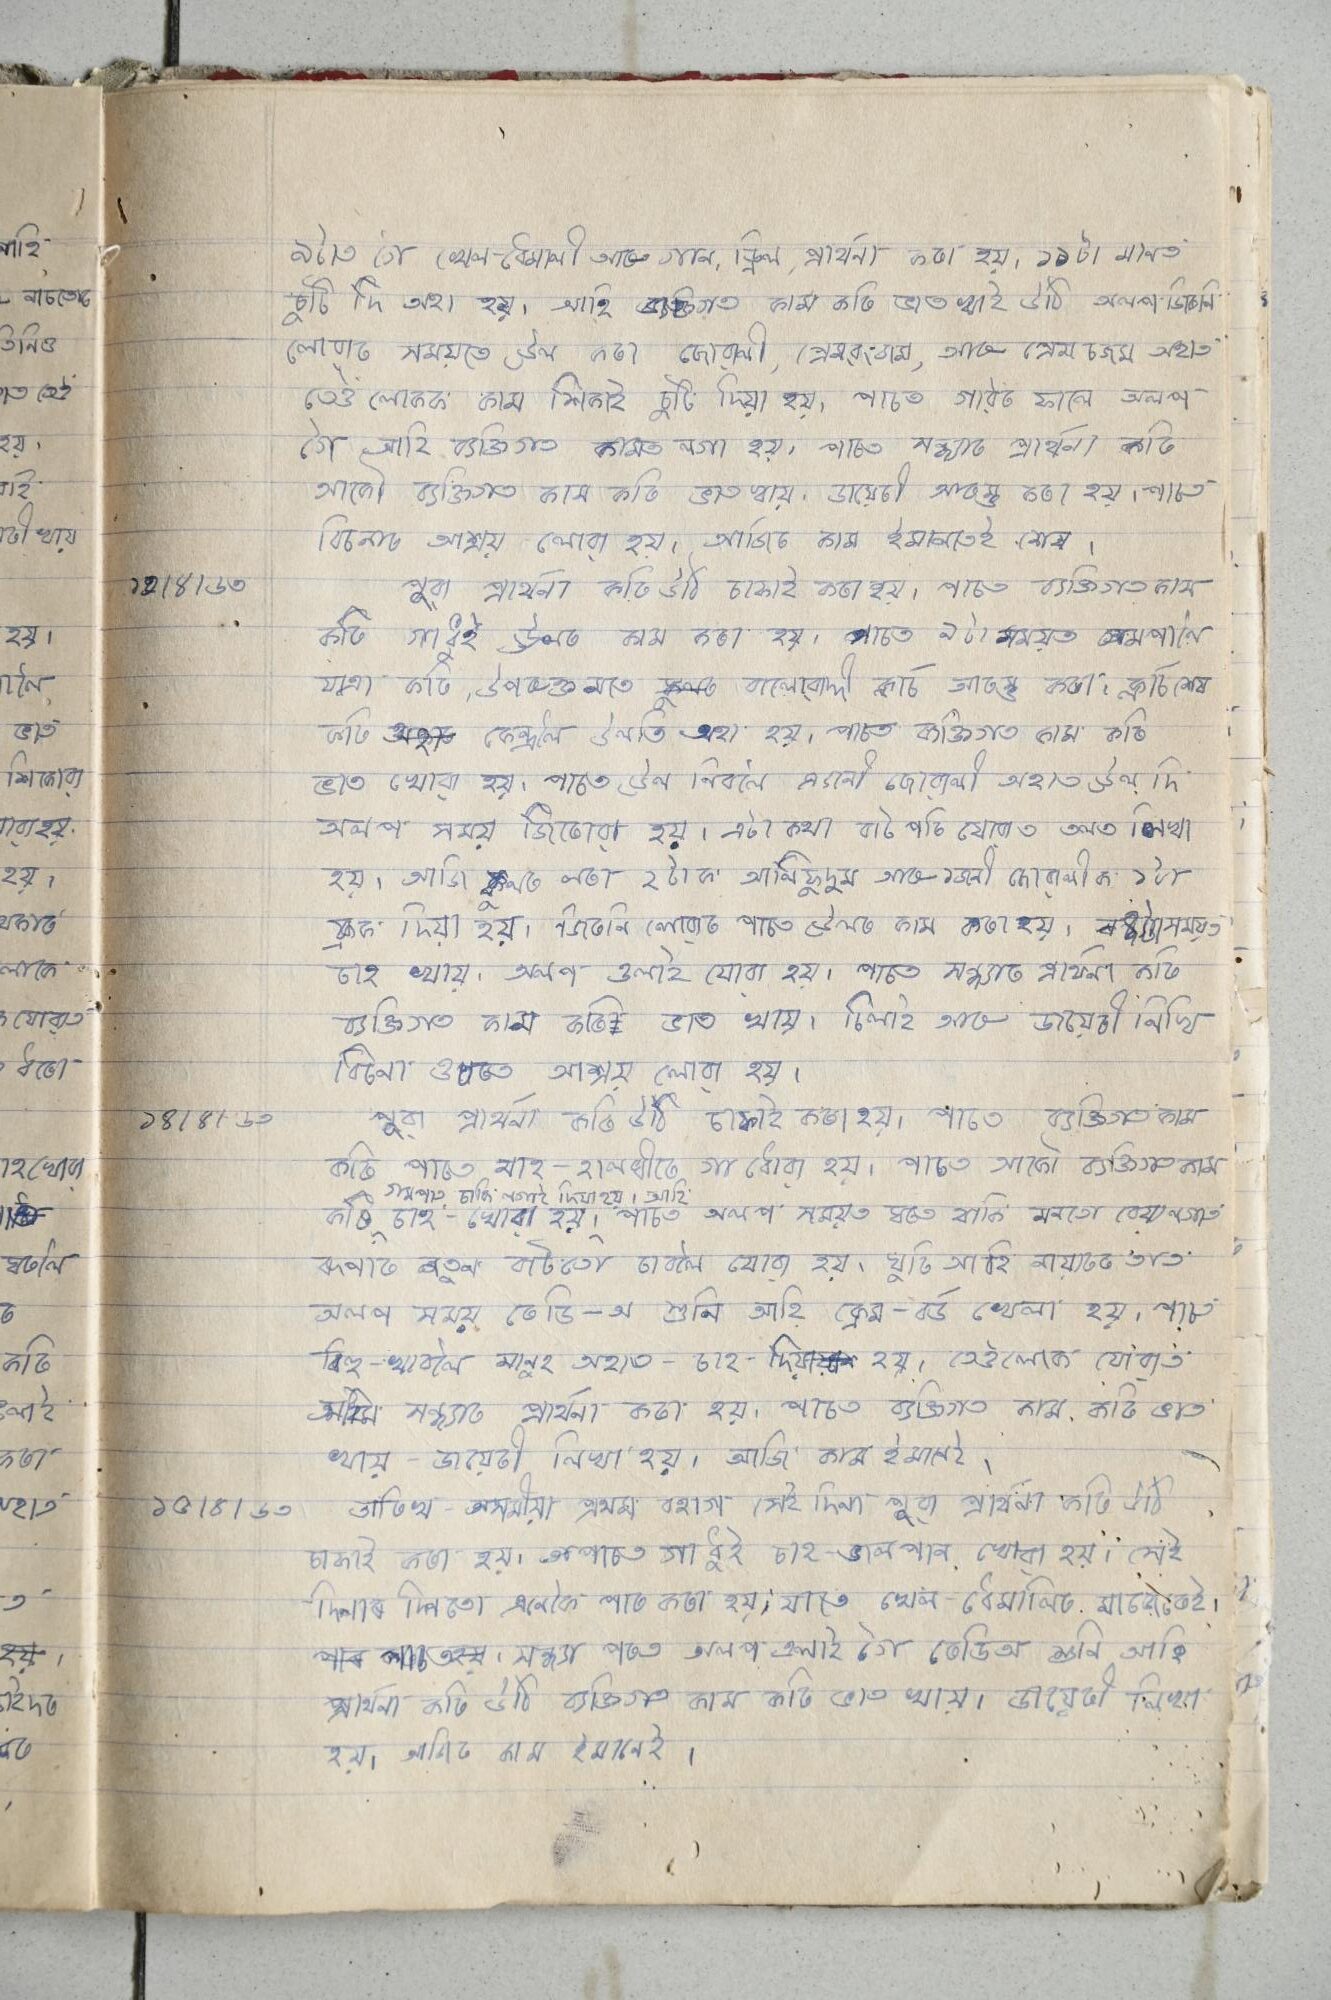 ৯টাত গৈ খেল-ধেমালী আৰু গান, ড্ৰিল, প্ৰাৰ্থনা কৰা হয়। ১১টা মানত
চুটি দি অহা হয়। আহি ব্যক্তিগত কাম কৰি ভাত খাই উঠি অলপ জিৰনি
লোৱাৰ সময়তে উল কৰা ছোৱালী, আৰু অহাত
তেওঁলোকক কাম শিকাই চুটি দিয়া হয়। পাচত গাৱঁৰ ফালে অলপ
গৈ আহি ব্যক্তিগত কামত লগা হয়। পাচত সন্ধ্যাৰ প্ৰাৰ্থনা কৰি
আকৌ ব্যক্তিগত কাম কৰি ভাত খায়। ডায়েৰী আৰম্ভ কৰা হয়। পাচত
বিচনাত আশ্ৰয় লোৱা হয়। আজিৰ কাম ইমানতেই শেষ।
১৩/৪/৬৩ পুৱা প্ৰাৰ্থনা কৰি উঠি চাফাই কৰা হয়। পাচত ব্যক্তিগত কাম
কৰি গা ধুই উলৰ কাম কৰা হয়। পাচত ৯টা সময়ত কমপালৈ
যাত্ৰা কৰি, উপৰুক্ত মতে স্কুলৰ বালোবাদী কাৰ্য আৰম্ভ কৰা। কাৰ্য শেষ
কৰি কেন্দ্ৰলৈ উলটি অহা হয়। পাচত ব্যক্তিগত কাম কৰি
ভাত খোৱা হয়। পাচত উল নিবলৈ ছোৱালী অহাত উল দি
অলপ সময় জিৰোৱা হয়। এটা কথা বাট পৰি যোৱাত তলত লিখা
হয়। আজি স্কুলৰ লৰা ২টাক আৰু ১জনী ছোৱালীক ১টা
ফ্ৰক দিয়া হয়। জিৰনি লোৱাৰ পাচত উলৰ কাম কৰা হয়। সময়ত
চাহ খায়। অলপ ওলাই যোৱা হয়। পাচত সন্ধ্যাৰ প্ৰাৰ্থনা কৰি
ব্যক্তিগত কাম কৰি ভাত খায়। চিলাই আৰু ডায়েৰী লিখি
বিচনা ওপৰত আশ্ৰয় লোৱা হয়।
১৪/৪/৬৩ পুৱা প্ৰাৰ্থনা কৰি উঠি চাফাই কৰা হয়। পাচত ব্যক্তিগত কাম
কৰি পাচত মাহ-হালধীৰে গা ধোৱা হয়। পাচত আকৌ ব্যক্তিগত কাম
লগাই দিয়া হয়। আহি
কৰি চাহ-খোৱা হয়। পাচত অলপ সময়ত ঘৰতে থাকি মনতো বেয়া লগাত
নতুন বাটতো চাবলৈ যোৱা হয়। ঘুৰি আহি তাত
অলপ সময় ৰেডি-অ শুনি আহি কেৰম-বৰ্ড খেলা হয়। পাচত
বিহু-খাবলৈ মানুহ অহাত-চাহ-দিয়া হয়। তেওঁলোক যোৱাত
সন্ধ্যাৰ প্ৰাৰ্থনা কৰা হয়। পাচত ব্যক্তিগত কাম কৰি ভাত
খায়-ডায়েৰী লিখা হয়। আজি কাম ইমানেই।
১৫/৪/৬৩ তাৰিখ-অসমীয়া প্ৰথম বহাগ সেই দিনা পুৱা প্ৰাৰ্থনা কৰি উঠি
চাফাই কৰা হয়। পাচত গা ধুই চাহ-জলপান খোৱা হয়। সেই
দিনাৰ দিনতো এনেকৈ পাৰ কৰা হয়, যাতে খেল-ধেমালিৰ মাজেৰেই।
সন্ধ্যা পৰত অলপ ওলাই গৈ ৰেডিঅ শুনি আহি
প্ৰাৰ্থনা কৰি উঠি ব্যক্তিগত কাম কৰি ভাত খায়। ডায়েৰী লিখা
হয়। আজিৰ কাম ইমানেই।